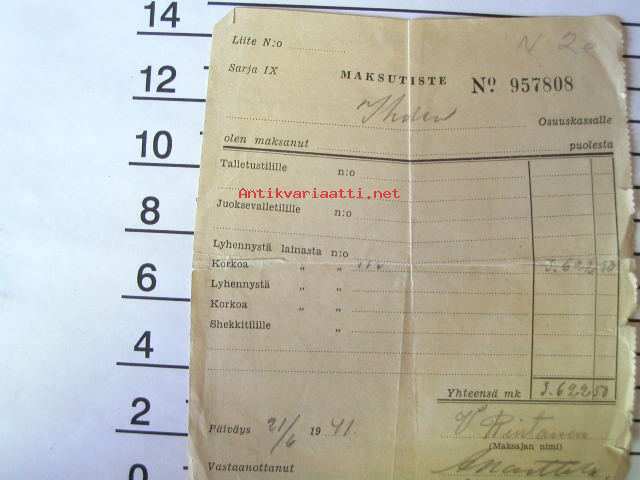 14
12
10
8
6
4
2
0
Liite N:o
N 2e
Sarja IX
MAKSUTISTE Nº 957808
Osuuskassalle
olen maksanut puolesta
Talletustilille n:o
Antikvariaatti.net
Juoksevalletilille n:o
Lyhennystä lainasta n:o
Korkoa " " 3.622 50
Lyhennystä " "
Korkoa " "
Shekkitilille "
Yhteensä mk 3.622 50
Päiväys 21/6 1941.
V Rintanen
(Maksajan nimi)
Vastaanottanut